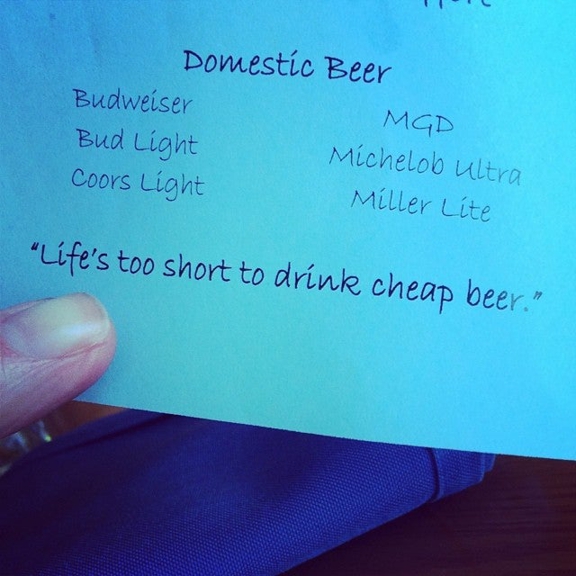 Domestic Beer
Budweiser
Bud Light
Coors Light
MGD
Michelob Ultra
Miller Lite
"Life's too short to drink cheap beer."